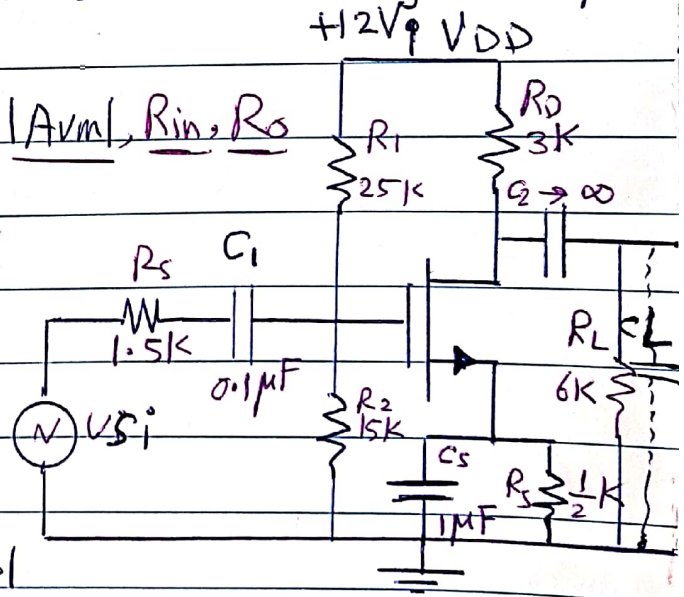 +12V VDD
|Avm|, Rin, Ro
R1
25K
RD
3K
C2 → ∞
Rs
1.5K
C1
0.1μF
RL
6K
CL
Vsi
R2
15K
Cs
1μF
Rs
1/2 K